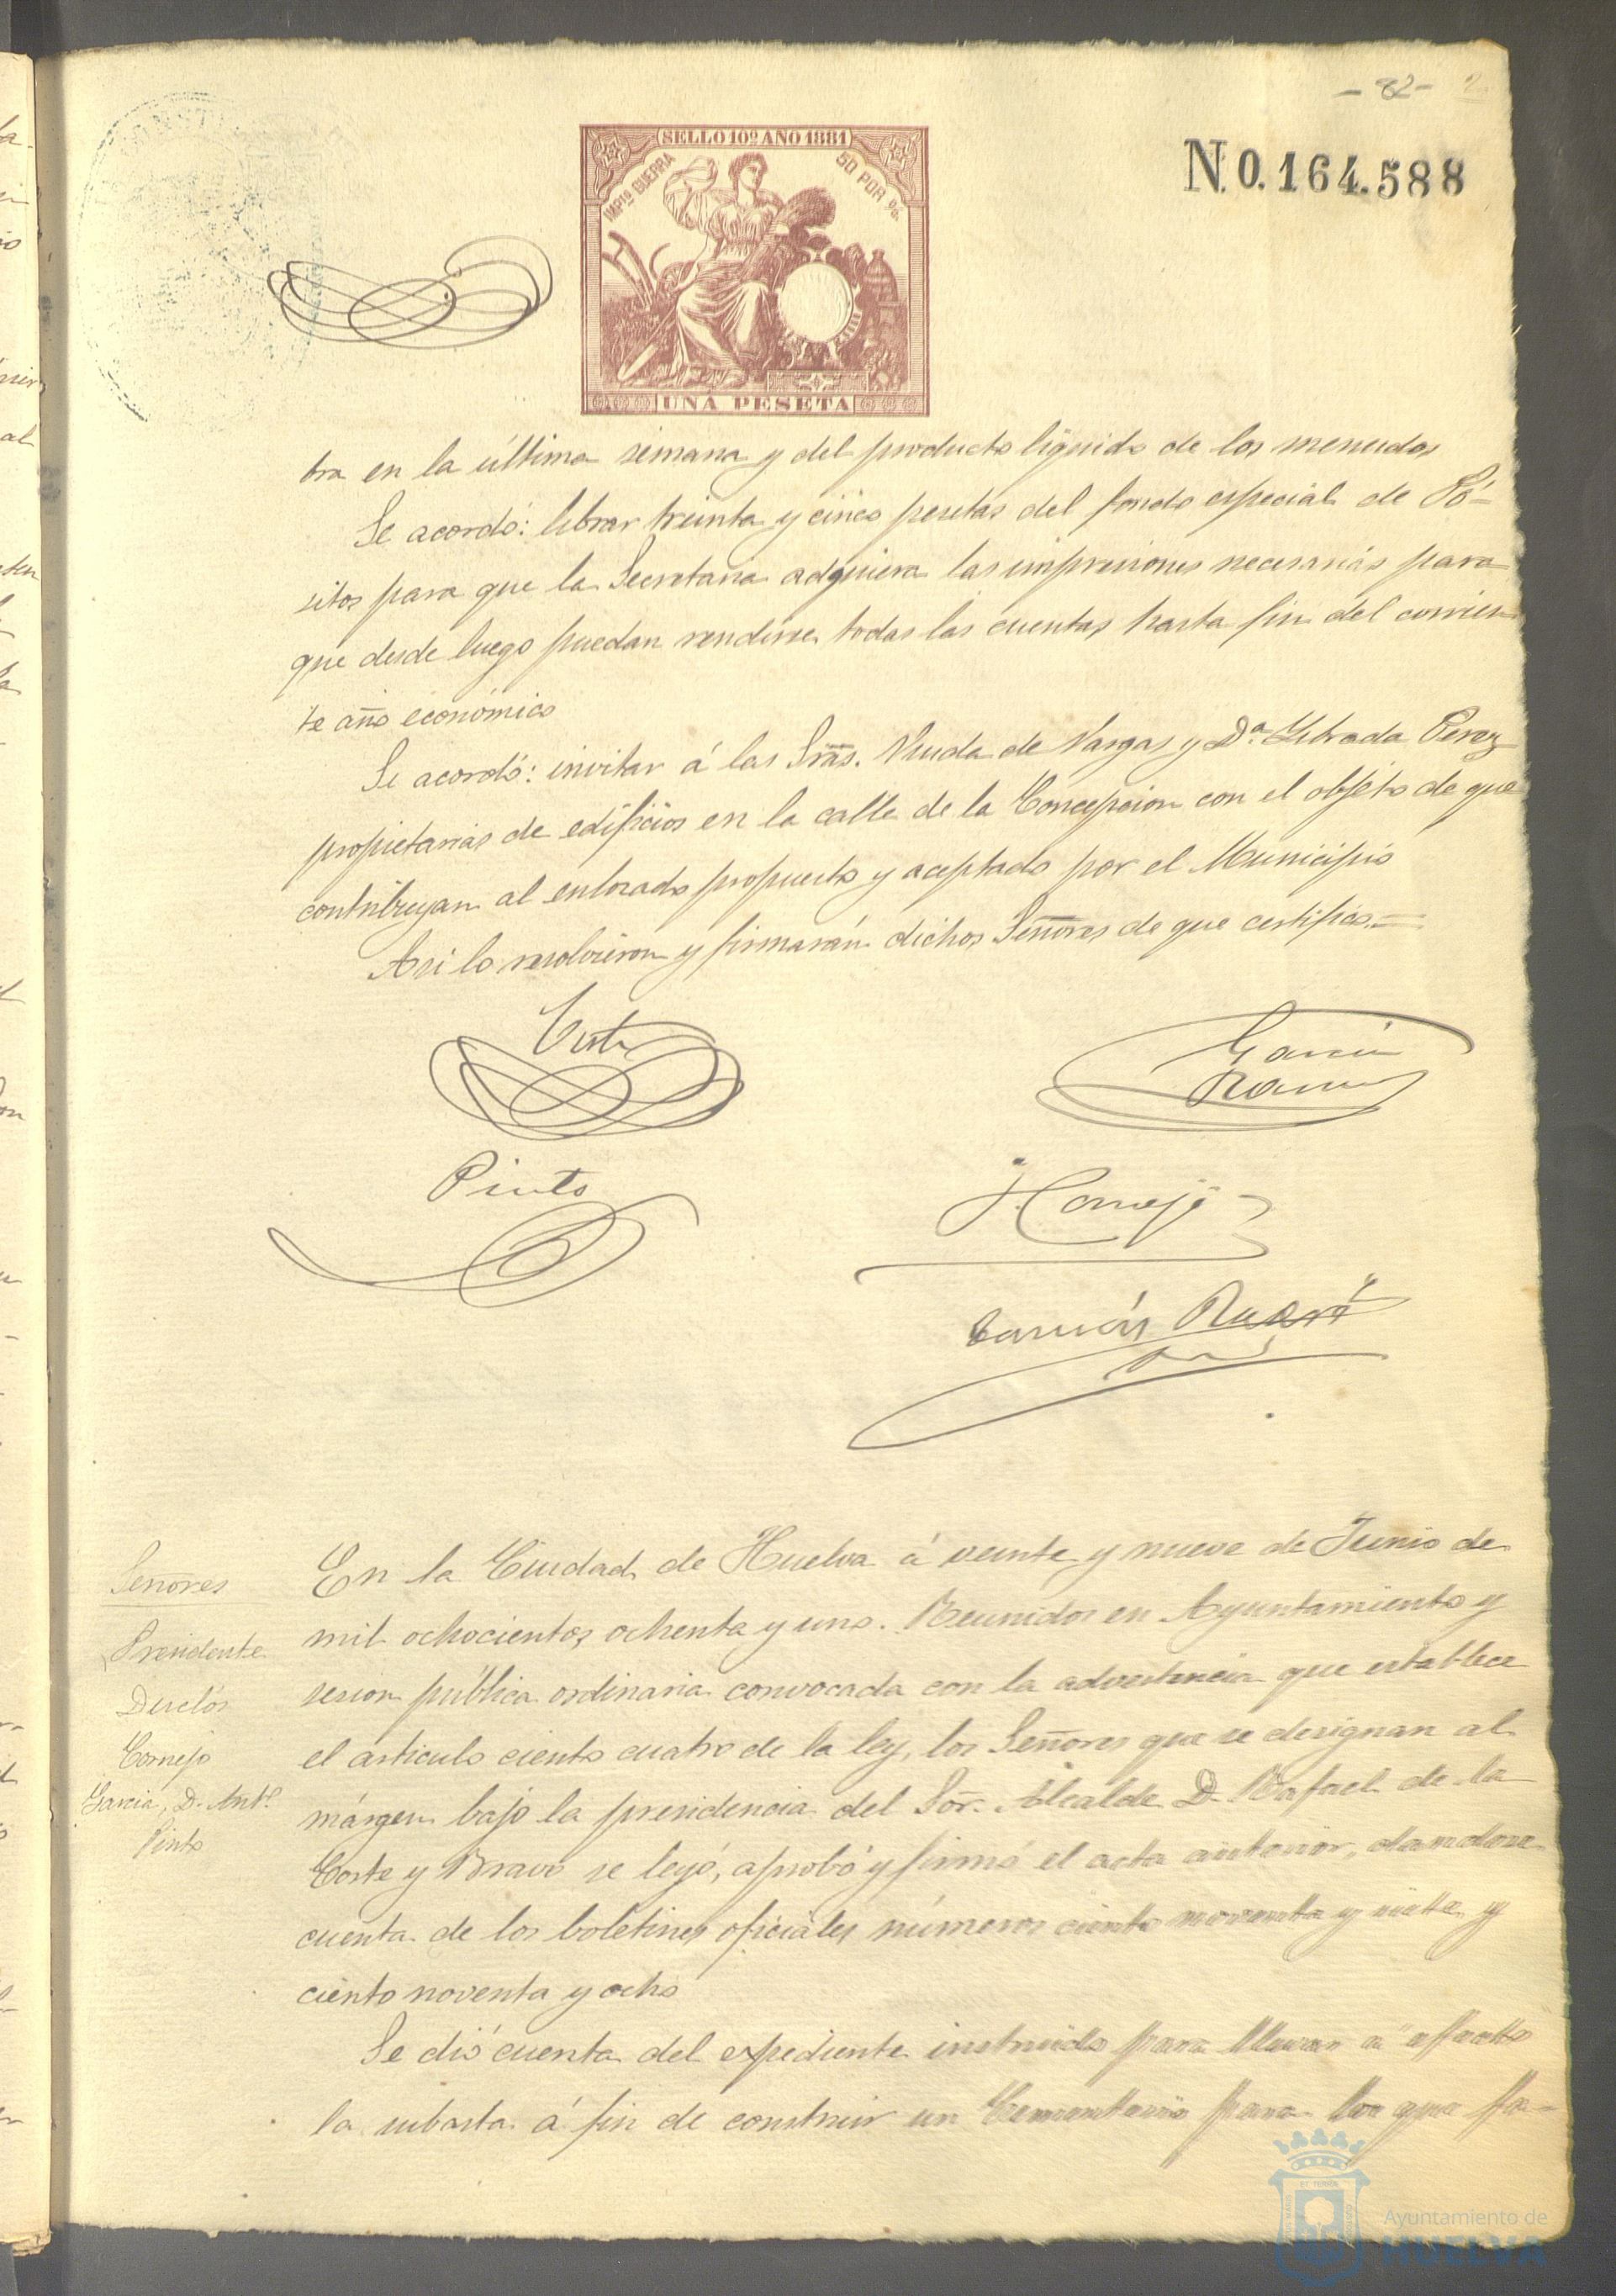 - 82 - 2
SELLO 10º AÑO 1881
IMPTO GUERRA
50 POR %
UNA PESETA
N. 0.164.588
tra en la última semana y del producto liquido de los menudos
Se acordó: librar treinta y cinco pesetas del fondo especial de Pó-
sitos para que la Secretaria adquiera las impresiones necesarias para
que desde luego puedan rendirse todas las cuentas hasta fin del corrien
te año económico
Se acordó: invitar á las Sras. Viuda de Vargas y Dª Librada Perez
propietarias de edificios en la calle de la Concepcion con el objeto de que
contribuyan al enlosado propuesto y aceptado por el Municipio
Asi lo resolvieron y firmarán dichos Señores de que certifico.=
Corte
Garcia
Ramos
Pinto
Cornejo
Señores
Presidente
Desclós
Cornejo
Garcia, D. Antº
Pinto
En la Ciudad de Huelva á veinte y nueve de Junio de
mil ochocientos ochenta y uno. Reunidos en Ayuntamiento y
sesion pública ordinaria convocada con la advertencia que establece
el articulo ciento cuatro de la ley, los Señores que se designan al
márgen bajo la presidencia del Sor. Alcalde D. Rafael de la
Corte y Bravo se leyó, aprobó y firmó el acta anterior, dandose
cuenta de los boletines oficiales números ciento noventa y siete y
ciento noventa y ocho
Se dió cuenta del expediente instruido para llevar á efecto
la subasta á fin de construir un Cementerio para los que fa-
Ayuntamiento de
HUELVA